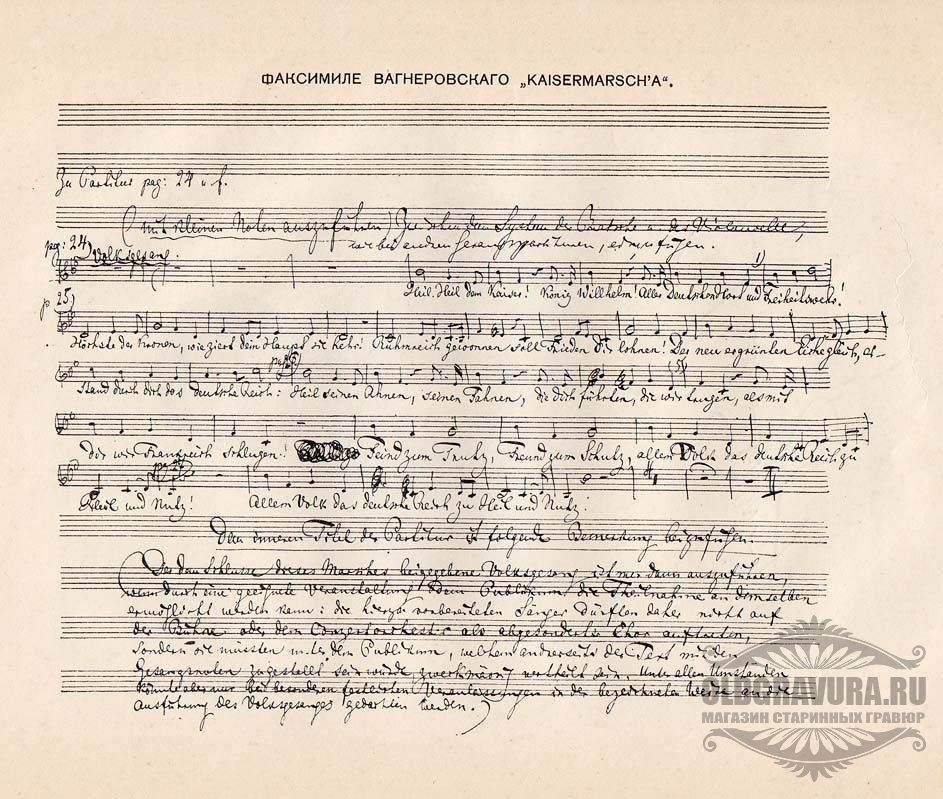 ФАКСИМИЛЕ ВАГНЕРОВСКАГО „KAISERMARSCH'A“.
Zu Partitur pag: 24 u. f.
(mit kleinen Noten auszuführen) Zwischen dem System der Bratsche u. der Violoncelle,
pag: 24) bei andren Gesangspartituren, einzufügen.
Volksgesang.
1)
Heil! Heil dem Kaiser! König Wilhelm! Aller Deutschen Hort und Freiheitswehr!
p. 25)
Höchste der Kronen, wie ziert dein Haupt sie hehr! Ruhmreich gewonnen soll Frieden Dir lohnen! Der neu ergrünten Eiche gleich, er-
stand durch dich das deutsche Reich: Heil seinen Ahnen, seinen Fahnen, die dich führten, die wir trugen, als mit
dir wir Frankreich schlugen! Feind zum Trutz, Freund zum Schutz, allem Volk das deutsche Reich zu
Heil und Nutz! Allem Volk das deutsche Reich zu Heil und Nutz.
Dem inneren Titel der Partitur ist folgende Bemerkung beizufügen.
(Der dem Schlusse dieses Marsches beigegebene Volksgesang ist nur dann auszuführen,
wenn durch eine geeignete Veranstaltung dem Publikum die Theilnahme an demselben
ermöglicht werden kann: die hierzu vorbereiteten Sänger dürften daher nicht auf
der Bühne oder dem Conzertorchester als abgesonderter Chor auftreten,
sondern sie müssten unter dem Publikum, welchem andrerseits der Text mit den
Gesangsnoten zugestellt sein würde, zweckmässig vertheilt sein. Unter allen Umständen
könnte aber nur bei besonderen festlichen Veranlassungen in der bezeichneten Weise an die
Ausführung des Volksgesanges gedacht werden.)
OLDGRAVURA.RU
МАГАЗИН СТАРИННЫХ ГРАВЮР